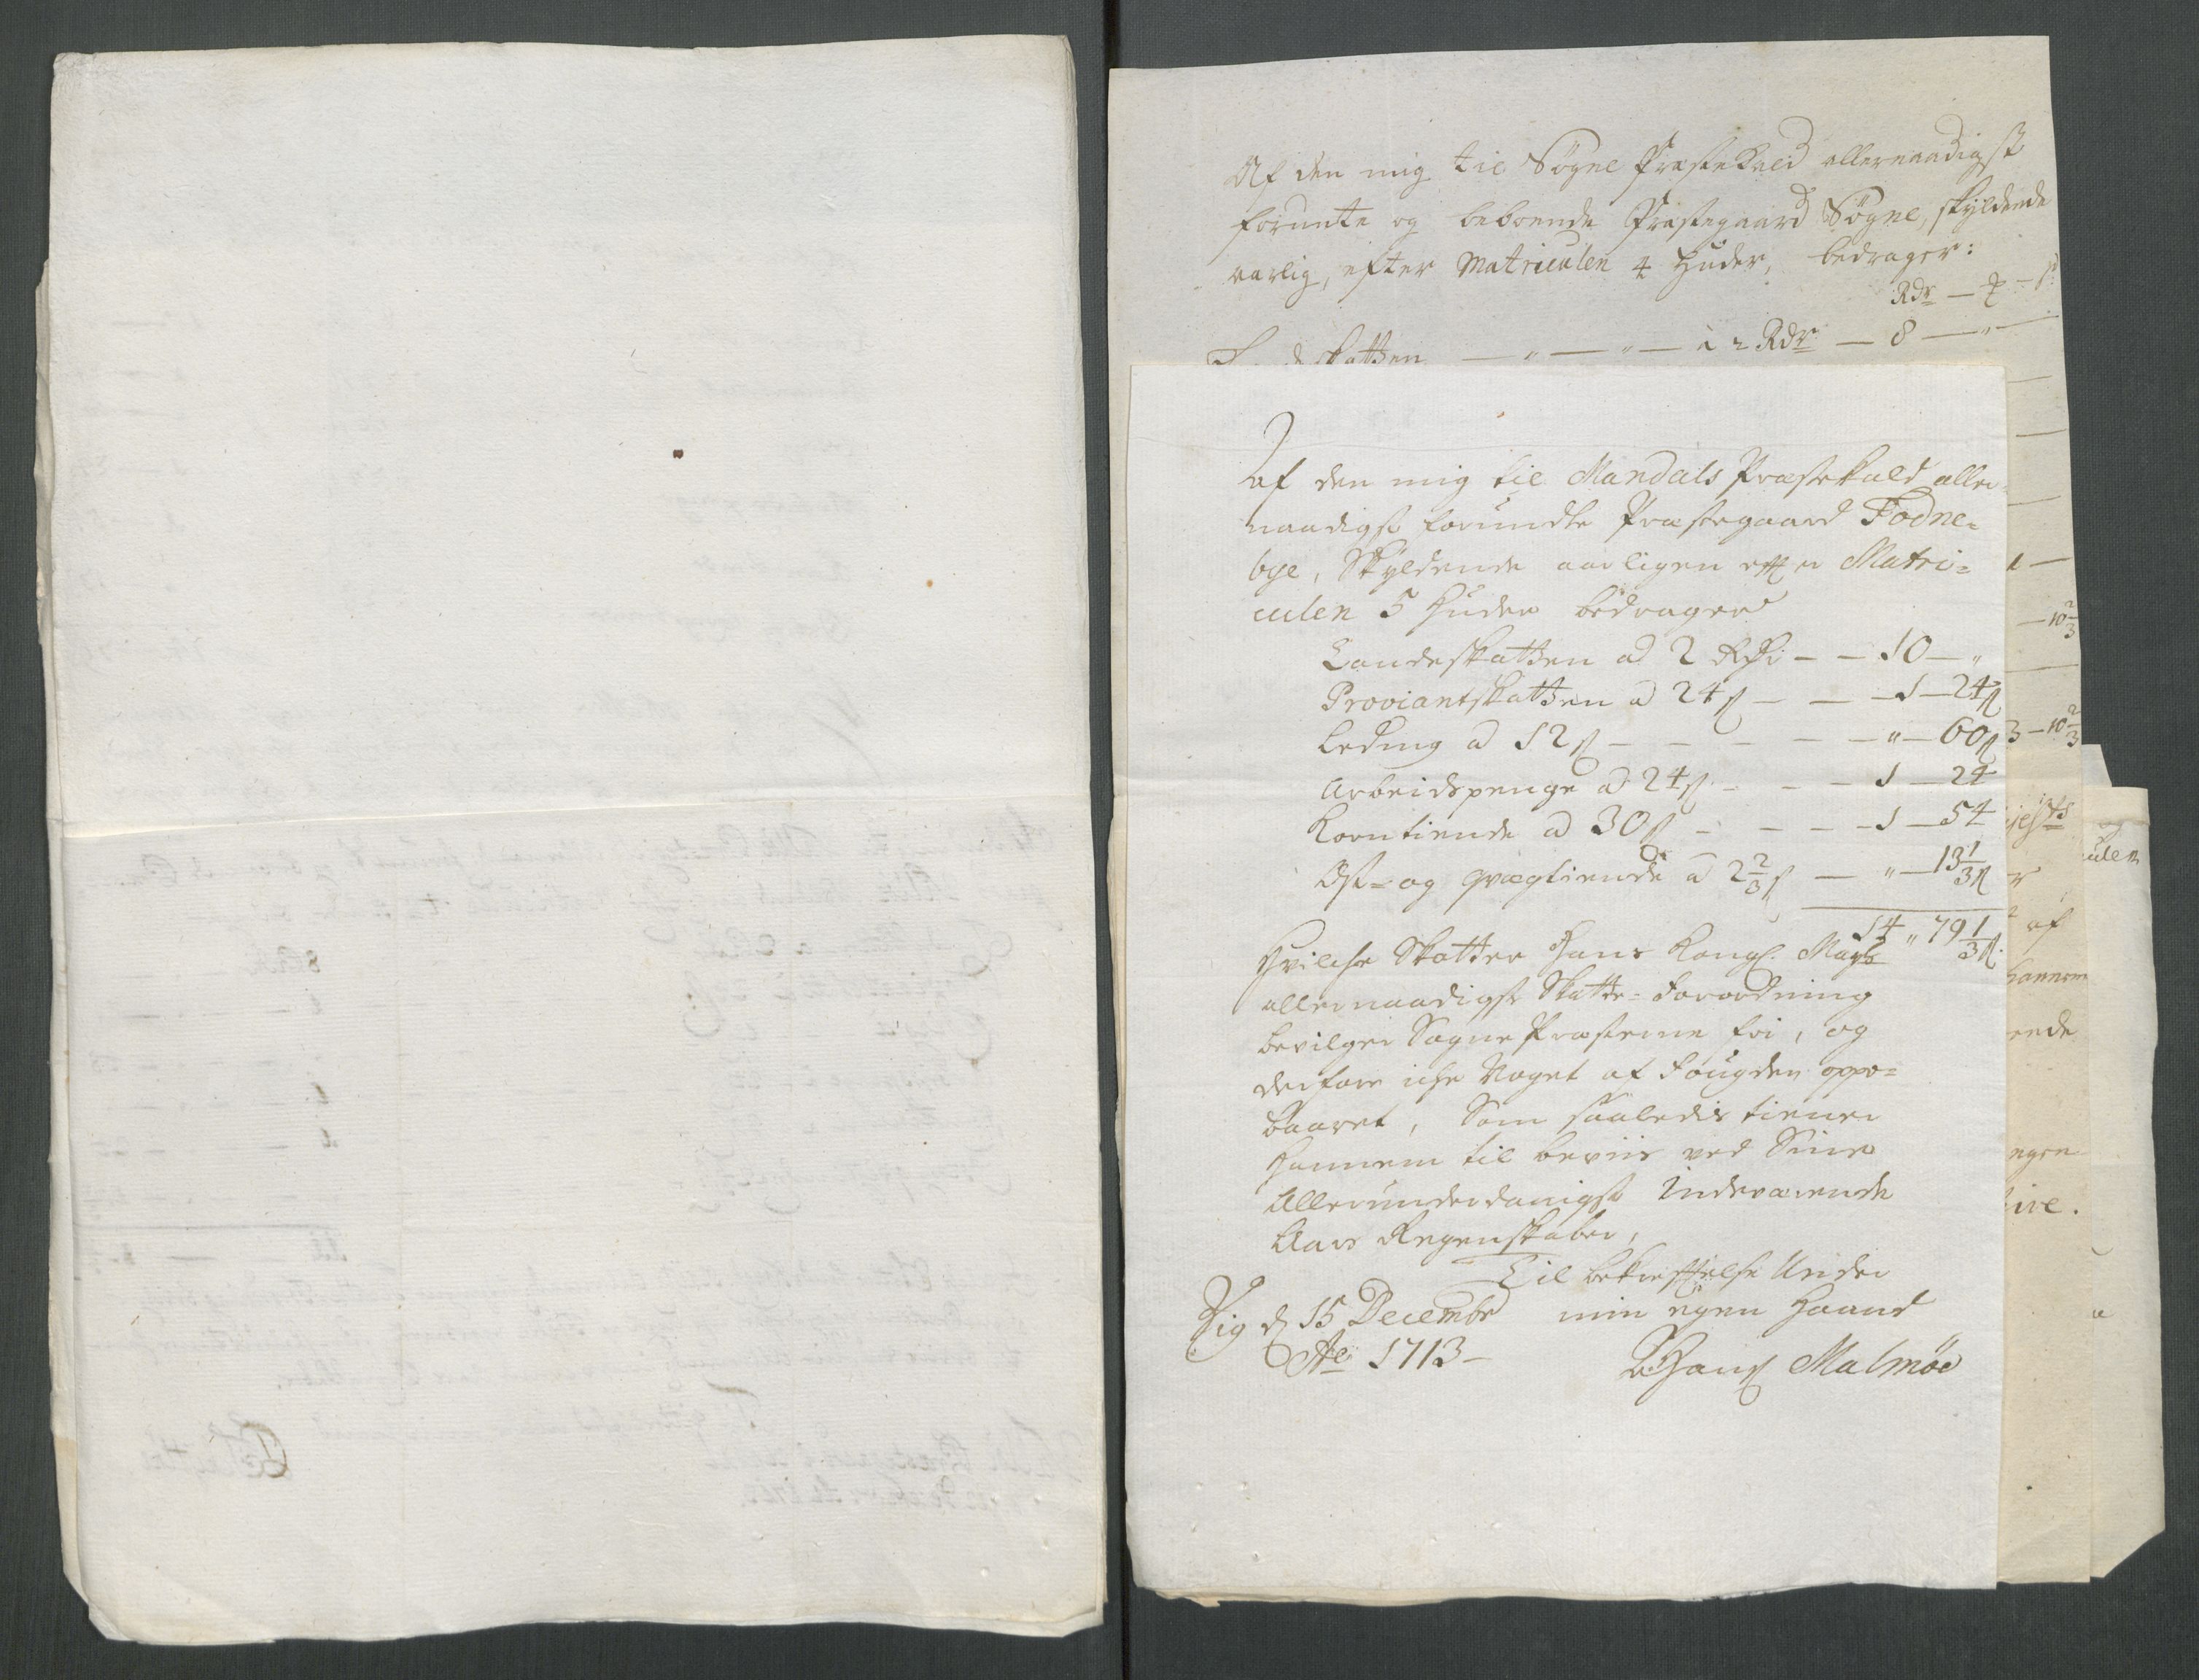 Af den mig til Søgne Præstekald allernaadigst
forunte og beboende Præstegaard Søgne, skyldende
aarlig, efter Matriculen 4 huder, bedrager:
Rdr — ꝥ — s:
skatten — „ — „ — à 2 Rdr — 8 — „ —
af den mig til Mandals Præstekald aller-
naadigst forundte Præstegaard Fodne-
bye, Skyldende aarligen effter Matri-
culen 5 huder bedrager
Landeskatten ad 2 Rdr — — 10 — „
Proviantskatten ad 24 s — — — 1 — 24 s
Leding ad 12 s — — — — — „ — 60 s
Arbeidspenge ad 24 s — — — 1 — 24
Korntiende ad 30 s — — — — 1 — 54
Ost- og qvægtiende ad 2 2/3 s — „ — 13 1/3 s
14 „ 79 1/3 s.
Hvilche Skatter Hans Kongl. Mayts
allernaadigste Skatte-Forordning
bevilger SognePræsterne fri, og
derfore iche Noget af Fougden oppe-
baaret, Som saaledis tiener
hannem til beviis ved Sine
Allerunderdanigste Indeværende
Aars Regenskaber,
Til bekræfftelse Under
Vig d 15 Decembr min egen Haand
Ao 1713 —
Hans Malmöe
1 —
— 10 2/3
3 — 10 2/3
jests
r
af
hannem
ende
egen
ive.
culen